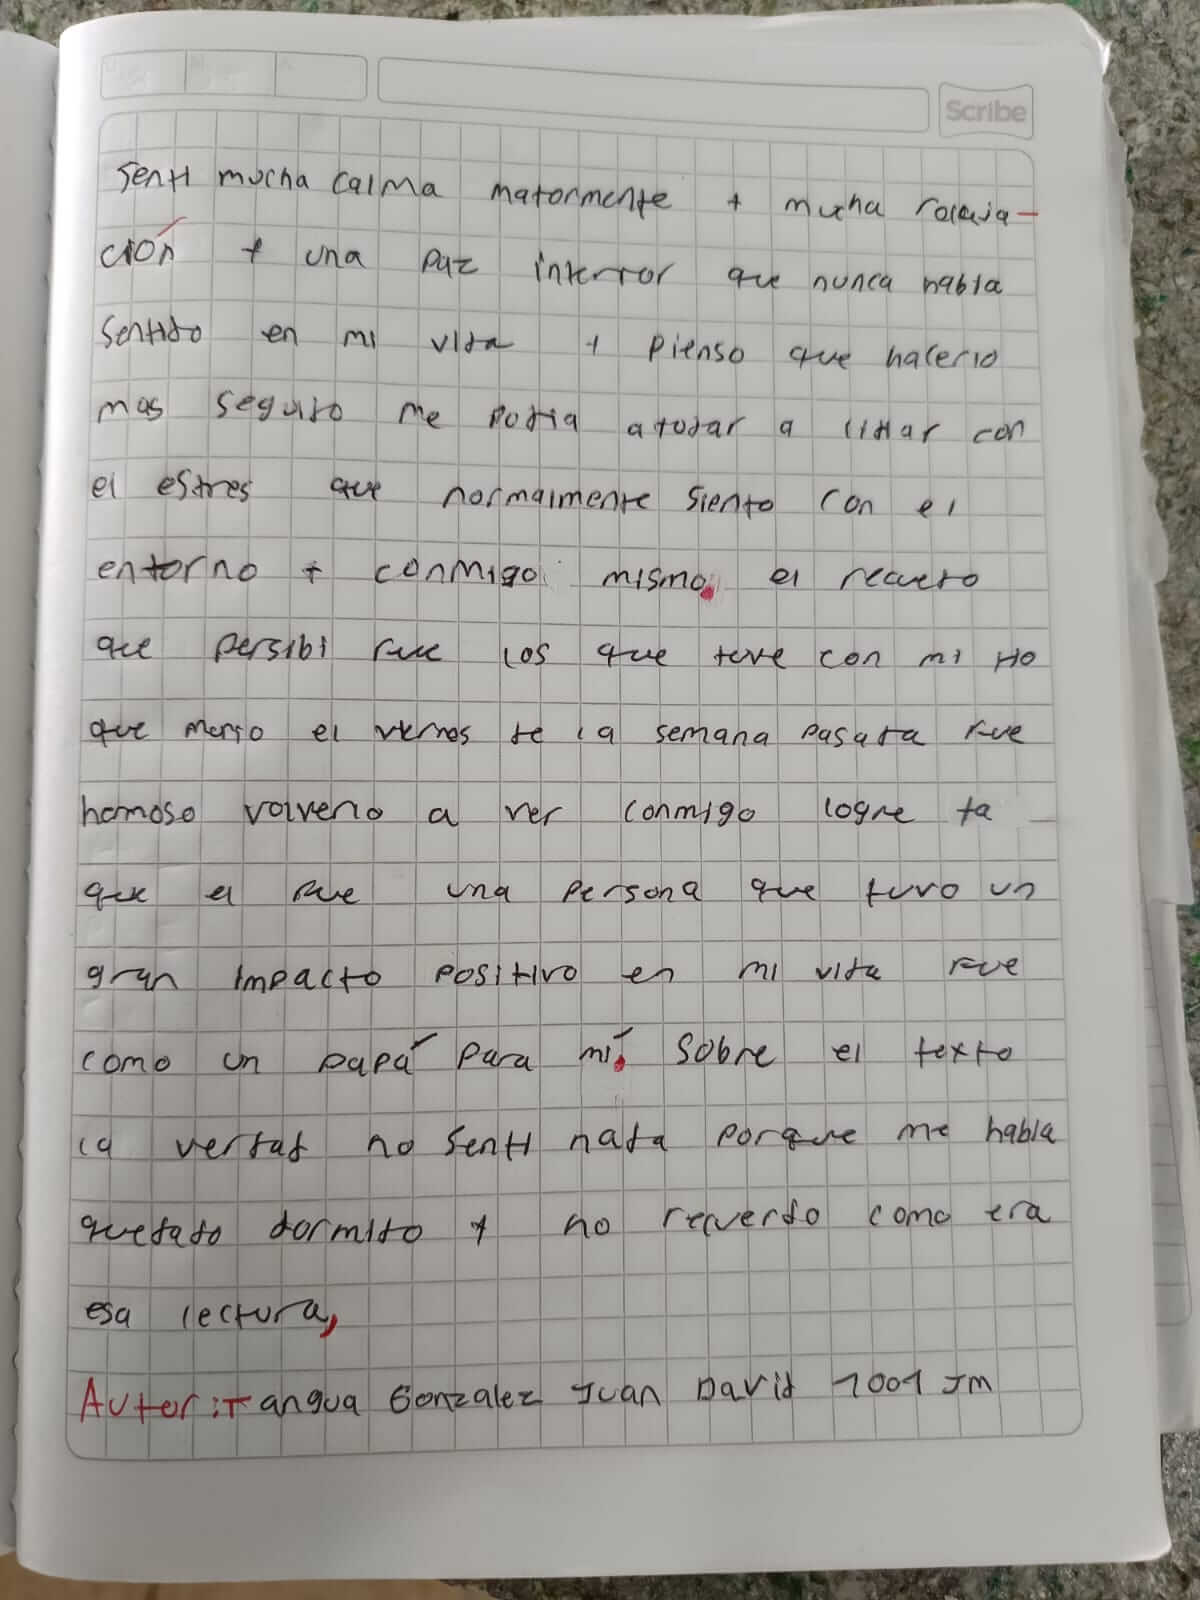 Scribe
Senti mucha calma matormente y mucha relaja-
ción y una paz interior que nunca habia
Sentido en mi vida y pienso que hacerlo
mas seguido me podia ayudar a lidiar con
el estres que normalmente siento con el
entorno y conmigo mismo. el recuerdo
que persibi fue los que tuve con mi tio
que murio el viernes de la semana pasada fue
hermoso volverlo a ver conmigo logre
que el fue una persona que tuvo un
gran impacto positivo en mi vida fue
como un papá para mí. Sobre el texto
la verdad no senti nada porque me habia
quedado dormido y no recuerdo como era
esa lectura,
Autor: Tangua Gonzalez Juan David 1001 JM